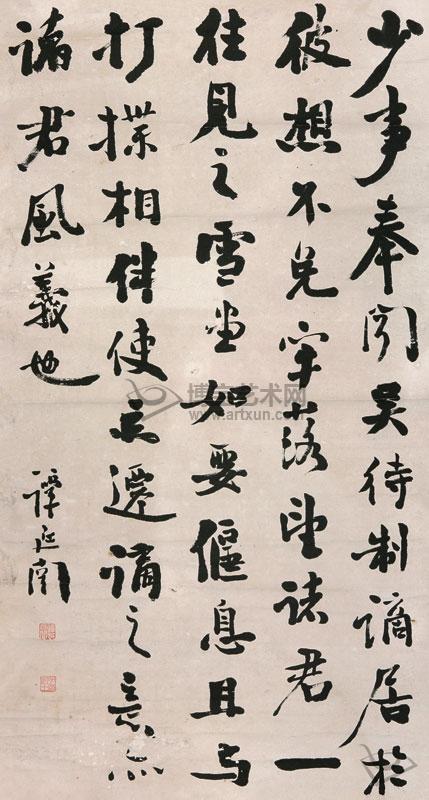 少事奉聞吳待制謫居於
彼想不免牢落望諸君一
往見之雪堂如要偃息且与
打揲相伴使忘遷謫之意亦
諸君風義也
譚延闓
博宝艺术网
www.artxun.com